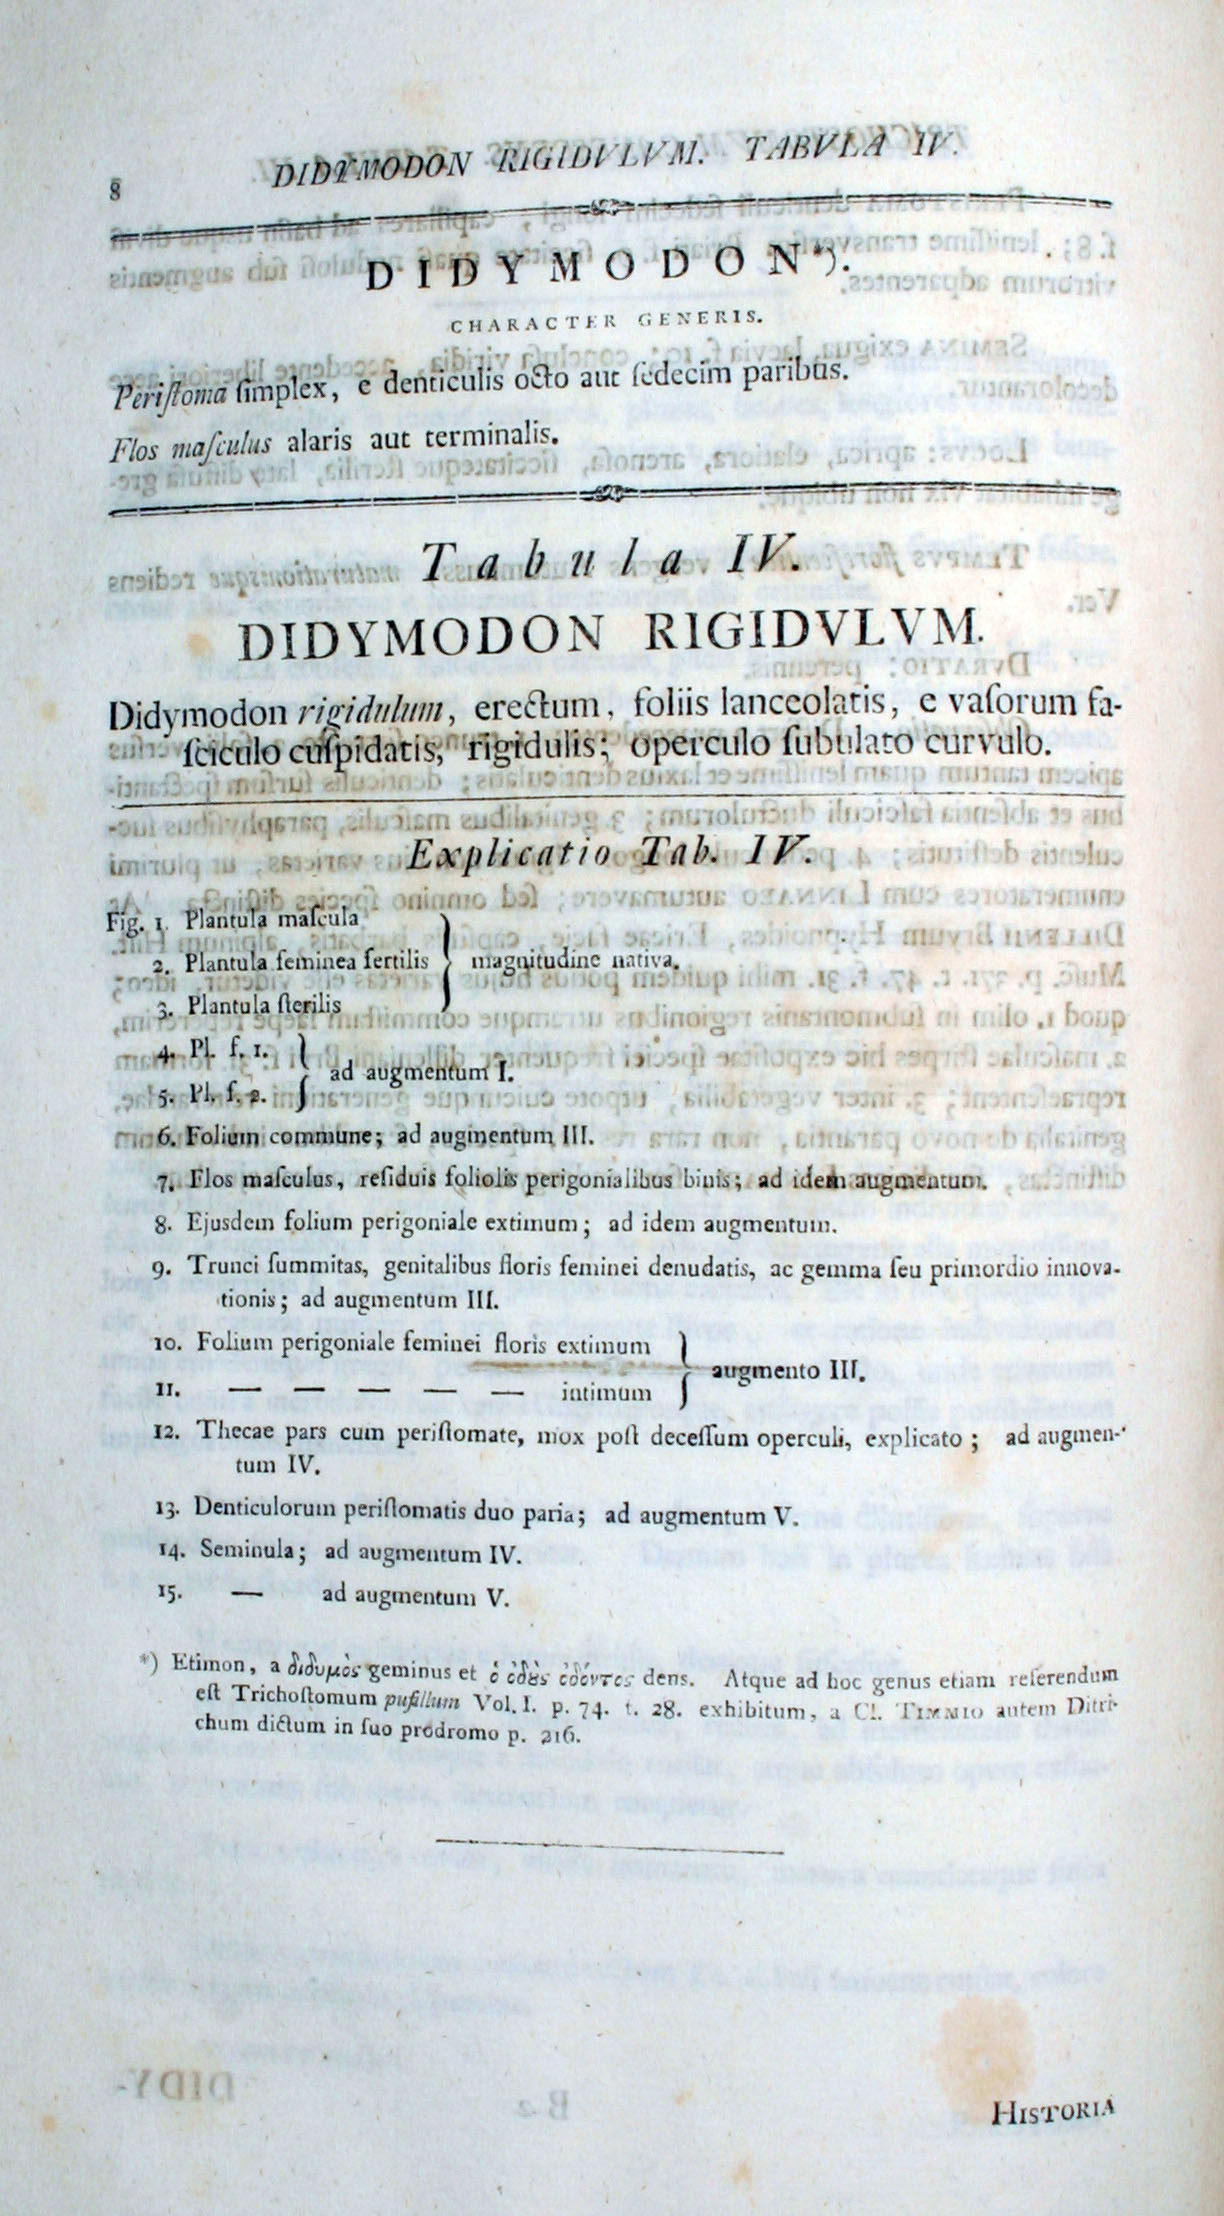 8
DIDYMODON RIGIDVLVM. TABVLA IV.
DIDYMODON*).
CHARACTER GENERIS.
Periſtoma ſimplex, e denticulis octo aut ſedecim paribus.
Flos maſculus alaris aut terminalis.
Tabula IV.
DIDYMODON RIGIDVLVM.
Didymodon rigidulum, erectum, foliis lanceolatis, e vaſorum fa-
ſciculo cuſpidatis, rigidulis; operculo ſubulato curvulo.
Explicatio Tab. IV.
Fig. 1. Plantula maſcula
2. Plantula feminea fertilis } magnitudine nativa.
3. Plantula ſterilis
4. Pl. f. 1.
} ad augmentum I.
5. Pl. f. 2.
6. Folium commune; ad augmentum III.
7. Flos maſculus, reſiduis foliolis perigonialibus binis; ad idem augmentum.
8. Ejusdem folium perigoniale extimum; ad idem augmentum.
9. Trunci ſummitas, genitalibus floris feminei denudatis, ac gemma ſeu primordio innova-
tionis; ad augmentum III.
10. Folium perigoniale feminei floris extimum
} augmento III.
11. — — — — — intimum
12. Thecae pars cum periſtomate, mox poſt deceſſum operculi, explicato; ad augmen-
tum IV.
13. Denticulorum periſtomatis duo paria; ad augmentum V.
14. Seminula; ad augmentum IV.
15. — ad augmentum V.
*) Etimon, a διδυμὸς geminus et ὁ ὀδȣ̀ς ὀδόντος dens. Atque ad hoc genus etiam referendum
eſt Trichoſtomum puſillum Vol. I. p. 74. t. 28. exhibitum, a Cl. TIMMIO autem Ditri-
chum dictum in ſuo prodromo p. 216.
HISTORIA